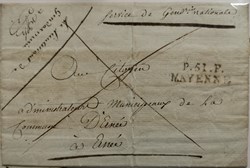 Service de Gend.ie nationale
P.51.P.
MAYENNE
Citoyen
administrateurs Municipaux de La
Commune D'Ernée
à Ernée